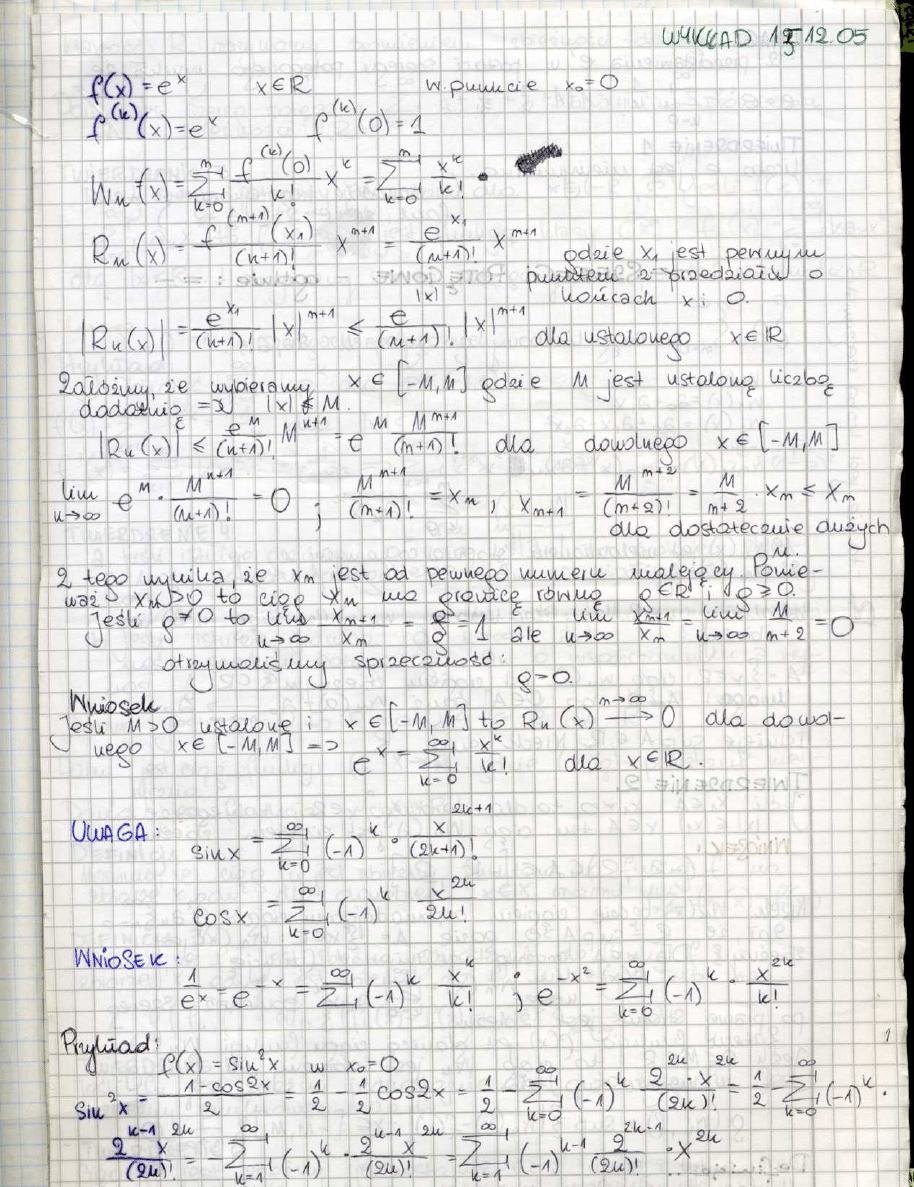 WYKŁAD 15 12.05
f(x) = e^x x∈ℝ w punkcie x₀=0
f^(k)(x) = e^x f^(k)(0) = 1
W_n f(x) = ∑_{k=0}^{n} f^(k)(0)/k! x^k = ∑_{k=0}^{n} x^k/k! .
R_n(x) = f^(n+1)(x₁)/(n+1)! x^{n+1} = e^{x₁}/(n+1)! x^{n+1} gdzie x₁ jest pewnym
punktem z przedziału o
końcach x i 0.
|R_n(x)| = e^{x₁}/(n+1)! |x|^{n+1} ≤ e^{|x|}/(n+1)! |x|^{n+1} dla ustalonego x∈ℝ
Załóżmy, że wybieramy x ∈ [-M,M] gdzie M jest ustaloną liczbą
dodatnią => |x| ≤ M.
|R_n(x)| ≤ e^M/(n+1)! M^{n+1} = e^M M^{n+1}/(n+1)! dla dowolnego x∈[-M,M]
lim_{n→∞} e^M · M^{n+1}/(n+1)! = 0 ; M^{n+1}/(n+1)! = x_n , x_{n+1} = M^{n+2}/(n+2)! = M/n+2 · x_n ≤ x_n
dla dostatecznie dużych
n.
Z tego wynika, że x_n jest od pewnego numeru malejący. Ponie-
waż x_n>0 to ciąg x_n ma granicę równą g∈ℝ i g≥0.
Jeśli g≠0 to lim_{n→∞} x_{n+1}/x_n = g/g = 1 ale lim_{n→∞} x_{n+1}/x_n = lim_{n→∞} M/n+2 = 0
otrzymaliśmy sprzeczność:
g=0.
Wniosek
Jeśli M>0 ustalone i x∈[-M,M] to R_n(x) →^{n→∞} 0 dla dowol-
nego x∈[-M,M] => e^x = ∑_{k=0}^{∞} x^k/k! dla x∈ℝ.
UWAGA:
sinx = ∑_{k=0}^{∞} (-1)^k · x^{2k+1}/(2k+1)!
cosx = ∑_{k=0}^{∞} (-1)^k · x^{2k}/2k!
WNIOSEK:
1/e^x = e^{-x} = ∑ ^{∞} (-1)^k x^k/k! ; e^{-x²} = ∑_{k=0}^{∞} (-1)^k · x^{2k}/k!
Przykład:
f(x) = sin²x w x₀=0
sin²x = 1-cos2x/2 = 1/2 - 1/2 cos2x = 1/2 - ∑_{k=0}^{∞} (-1)^k 2^{2k}·x^{2k}/(2k)! = 1/2 - ∑_{k=0}^{∞} (-1)^k ·
2^{k-1} x^{2k}/(2k)! = -∑_{k=1}^{∞} (-1)^k · 2^{k-1} x^{2k}/(2k)! = ∑_{k=1}^{∞} (-1)^{k-1} 2^{2k-1}/(2k)! · x^{2k}